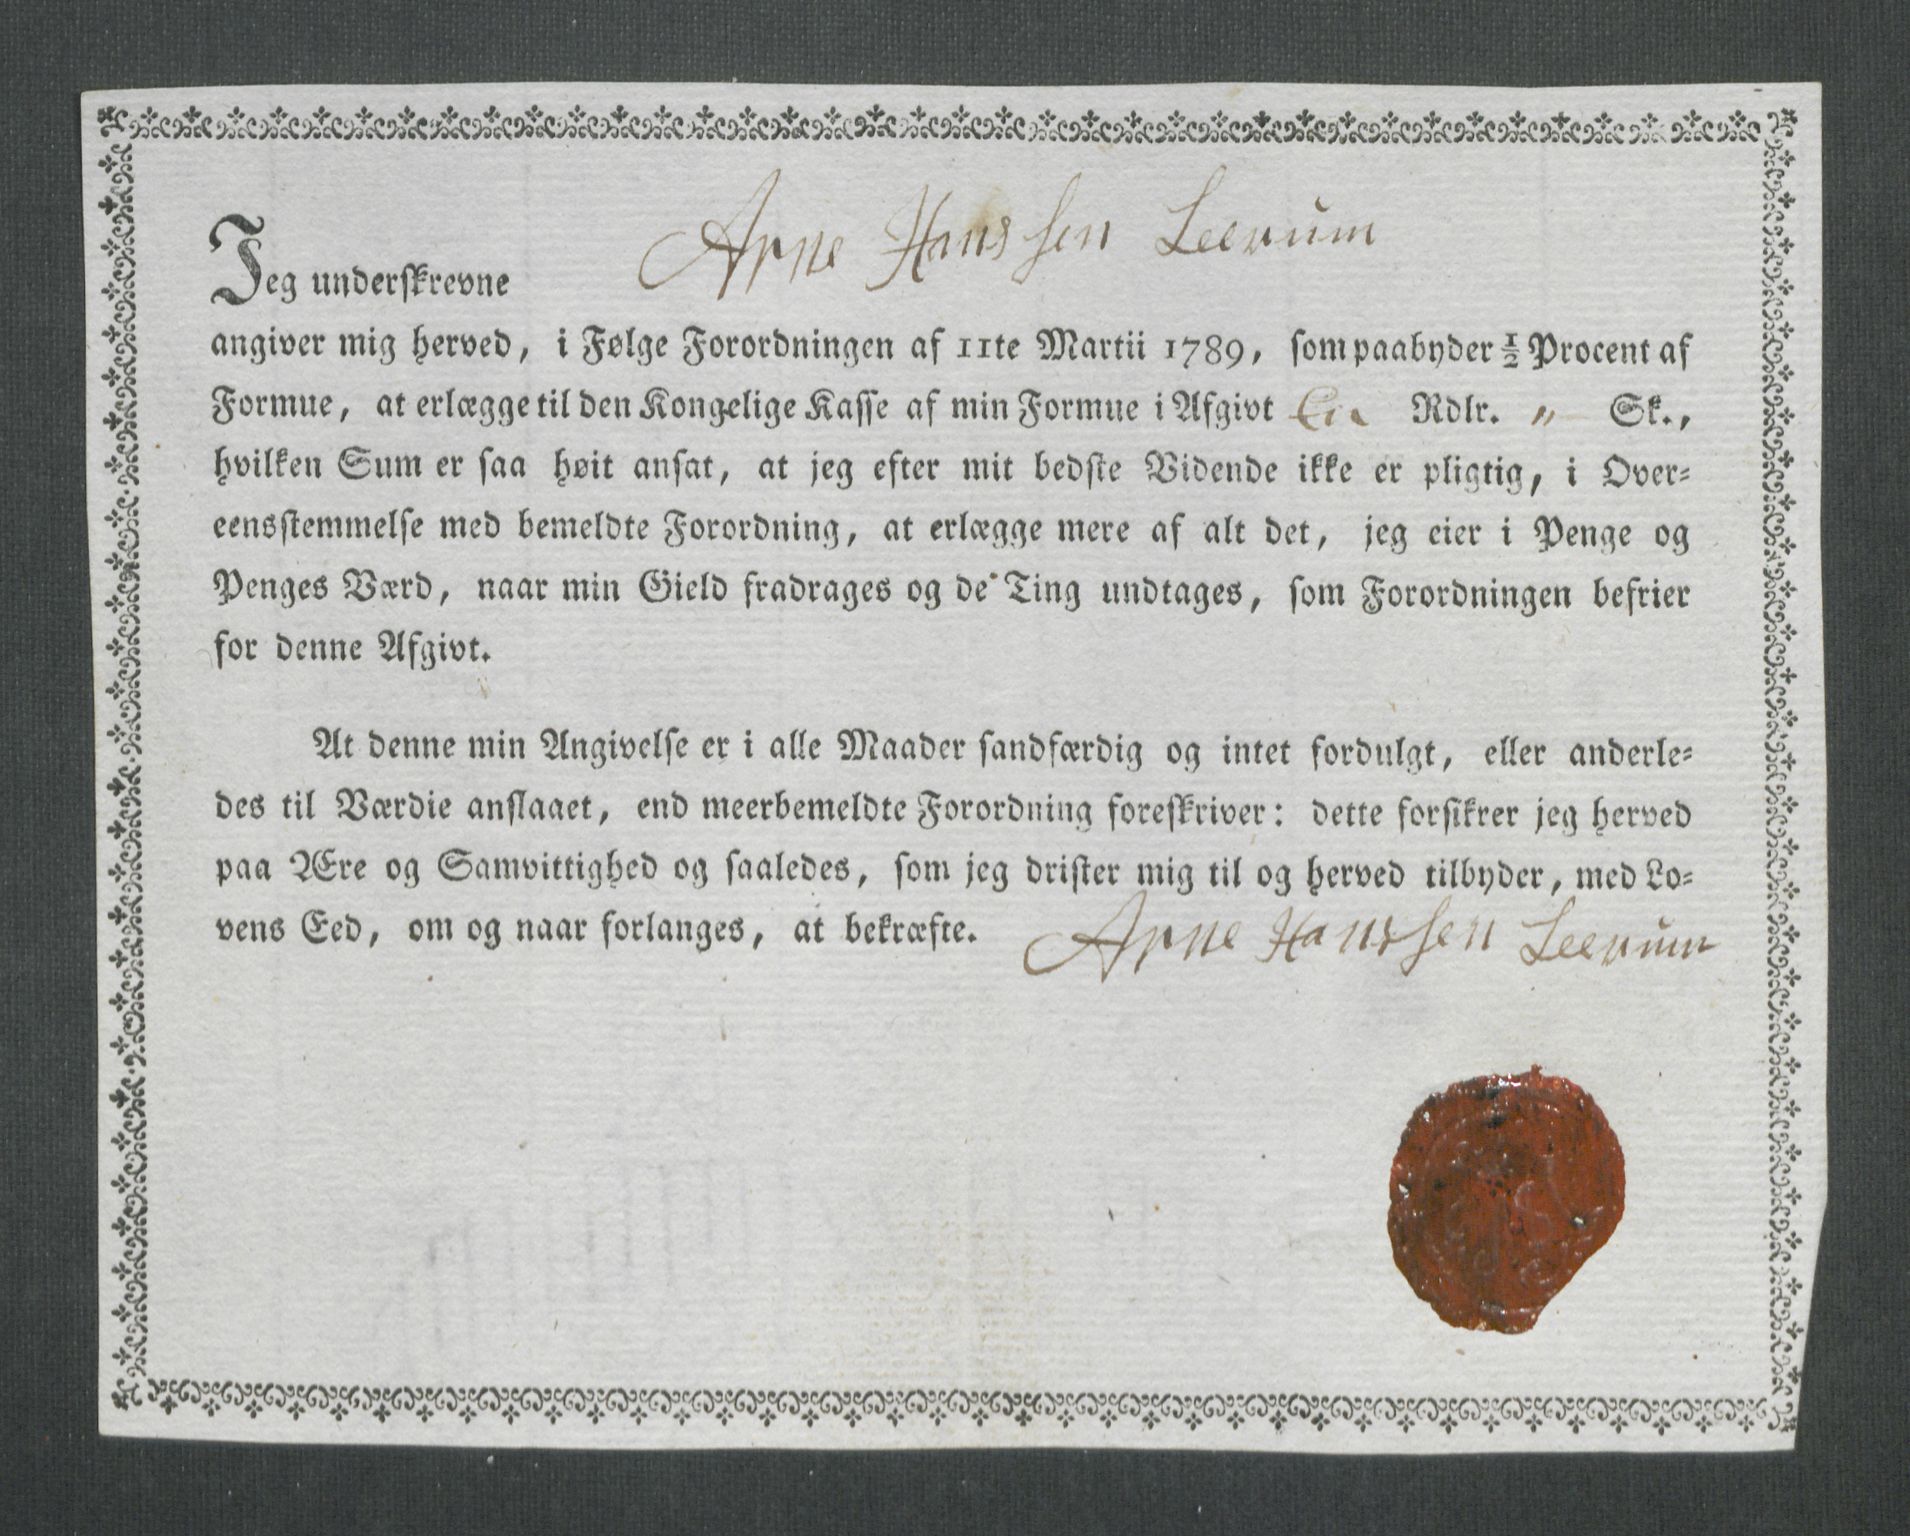 Jeg underskrevne Arne Hanssen Leerum
angiver mig herved, i Følge Forordningen af 11te Martii 1789, som paabyder ½ Procent af
Formue, at erlægge til den Kongelige Kasse af min Formue i Afgivt Rdlr. " Sk.,
hvilken Sum er saa høit ansat, at jeg efter mit bedste Vidende ikke er pligtig, i Over=
eensstemmelse med bemeldte Forordning, at erlægge mere af alt det, jeg eier i Penge og
Penges Værd, naar min Gield fradrages og de Ting undtages, som Forordningen befrier
for denne Afgivt.
At denne min Angivelse er i alle Maader sandfærdig og intet fordulgt, eller anderle=
des til Værdie anslaaet, end meerbemeldte Forordning foreskriver: dette forsikrer jeg herved
paa Ære og Samvittighed og saaledes, som jeg drister mig til og herved tilbyder, med Lo=
vens Eed, om og naar forlanges, at bekræfte. Arne Hanssen Leerum